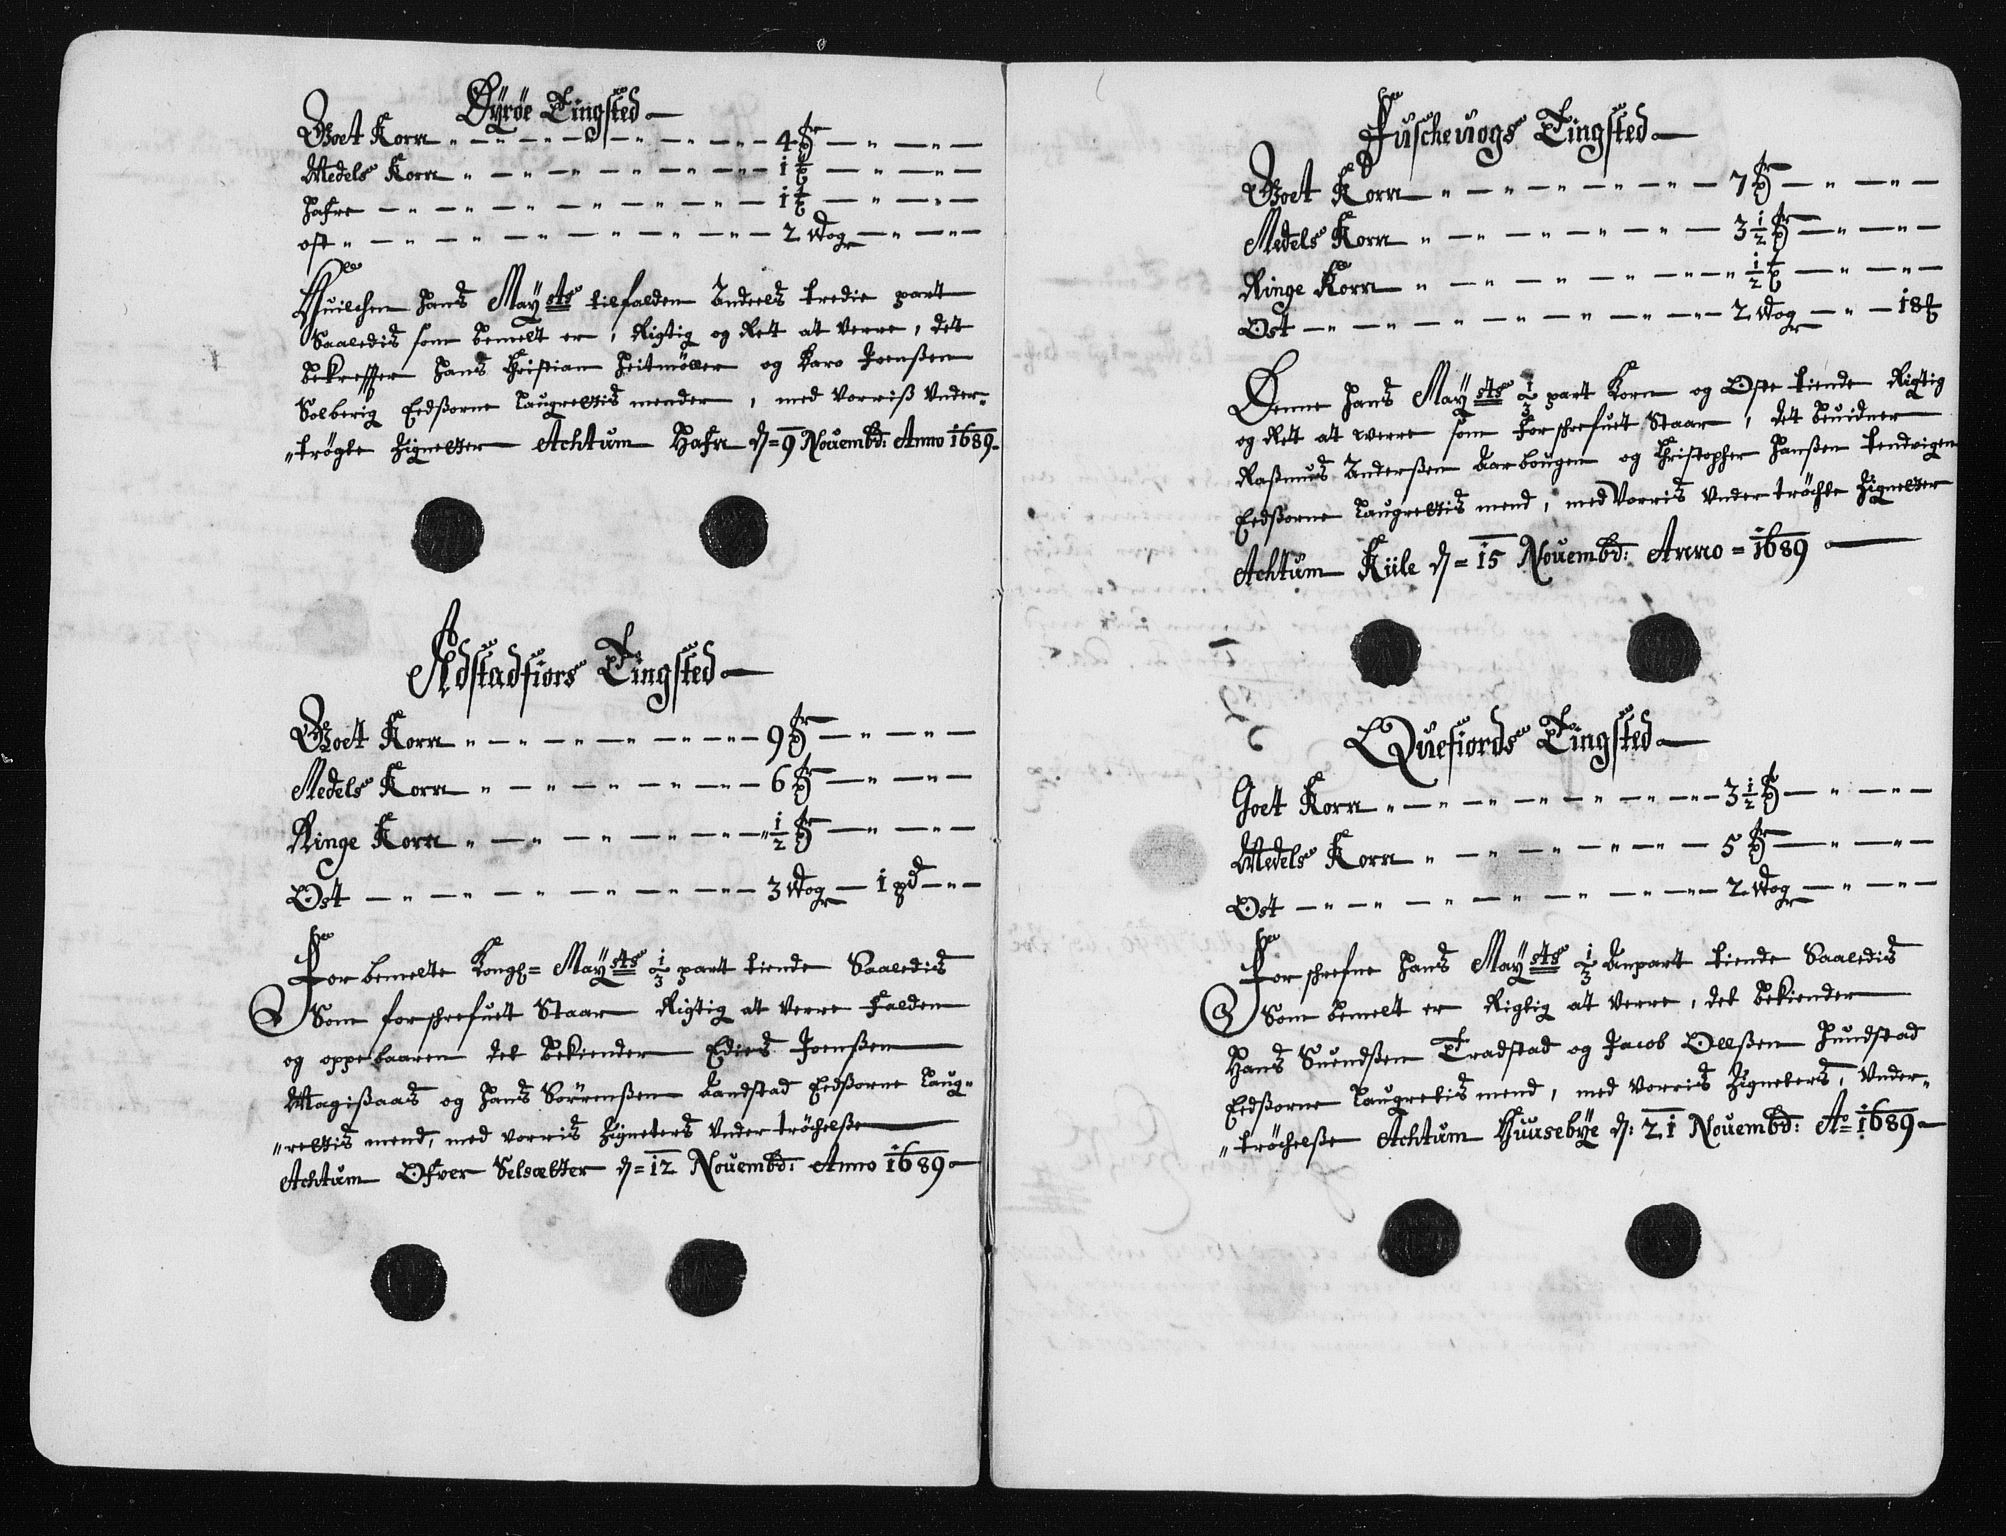 Dyrøe Tingsted
Goet Korn 4
Medels Korn 1
Hafre 1
ost 2 Wog
Huilchen hans Mayₛₜₛ tilfalden Andeels tredie part
Saaledis som bemelt er, Rigtig og Ret at verre, det
bekreffter hans Christian Heitmøller og Baro Joenßen
Solberig Eedßorne Laugrettis mender, med vorriß Under-
trøgte Zignetter Achtum Hafn d= 9 Novembd: Anno 1689
Astadfiors Tingsted
Goet Korn 9
Medels Korn 6
Ringe Korn ½
Ost 3 Wog 1 pd
For bemelte Kongl= Mayˢᵗˢ 1/3 part tiende Saaledis
Som forschrefuet Staar Rigtig at verre falden
og oppebaaren det bekiender Edies Joenßen
Magißaas og Hans Sörrenßen Landstad Eedßorne Laug-
rettis mend, med vorris Zigneters Under tröchelße
Achtum Ofver Selsetter d= 12 Novembd: Anno 1689
Fuschevogs Tingsted
Goet Korn 7
Medels Korn 3½
Ringe Korn ½
Ost 2 Wog 18
Denne Hans Mayˢᵗˢ 1/3 part Korn og Oste tiende Rigtig
og Ret at werre som forschrefuet Staar, det beuidner
Raßmus Anderßen Aarbougen og Christopher Hanßen Tendvigen
Eedßorne Laugrettis mend, med Vorris Under tröchte Zignetter
Achtum Kiile d= 15 Novembd: Anno = 1689
Quefiords Tingsted
Goet Korn 3½
Medels Korn 5
Ost 2 Wog
For schrefne Hans Mayˢᵗˢ 1/3 Anpart tiende Saaledis
Som bemelt er Rigtig at verre, det bekiender
Hans Suendßen Tradstad og Jacob Ollßen Hundstad
Eedßorne Laugretis mend, med vorris Zigneters, Under-
tröchelße Achtum Huusebye d: 21 Novembd: Aº 1689